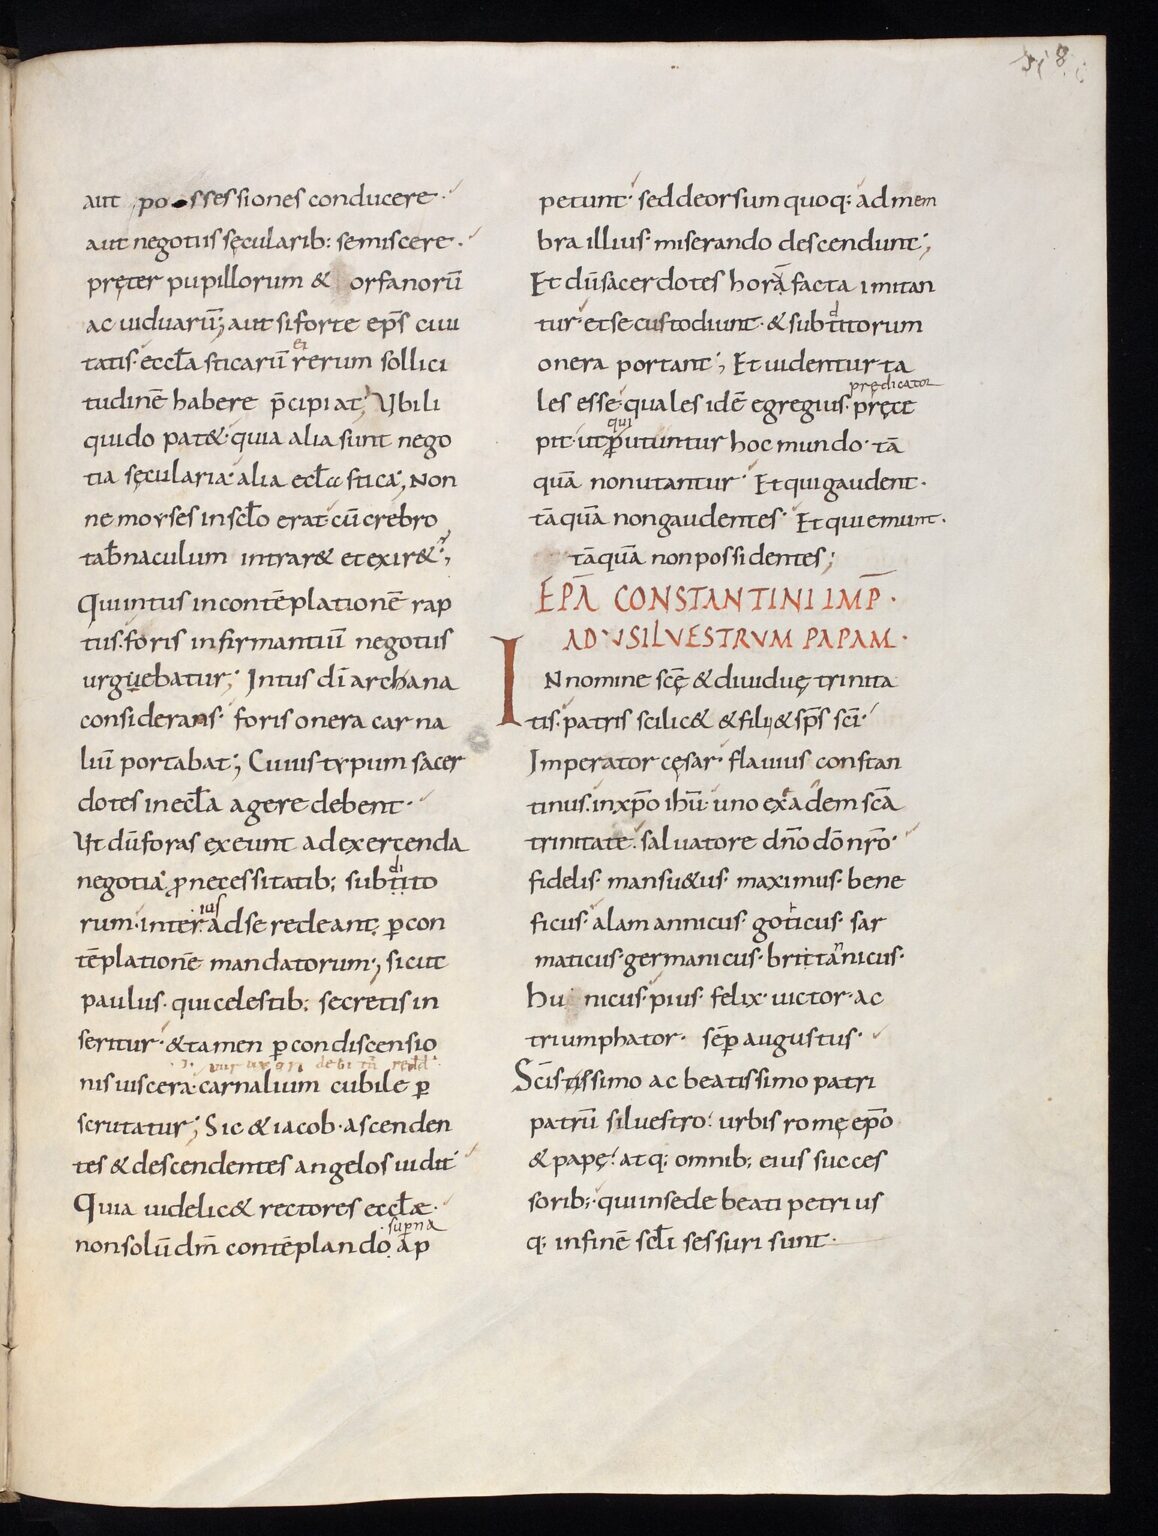 aut possessiones conducere·
aut negotiis sęcularib: se miscere·
pręter pupillorum & orfanorū
ac uiduarū; aut si forte ep̄s ciui
tatis· eccl̄a sticarū rerum sollici
ei
tudinē habere p̄cipiat; Vbi li
quido pat&· quia alia sunt nego
tia sęcularia· alia ecl̄ccstica; Non
ne moyses in scl̄o erat· cū crebro
tab̄naculum intrar& et exir&;
Qui intus in contēplationē rap
tus· foris infirmantiū negotiis
urguebatur; Intus dī archana
considerans· foris onera carna
liū portabat; Cuius typum sacer
dotes in ecl̄a agere debent·
Ut dū foras exeunt ad exercenda
negotia· ꝓ necessitatib; subtito
di
rum· inter ad se redeant· ꝑ con
ius
tēplationē mandatorum; sicut
paulus· qui celestib; secretis in
seritur· & tamen ꝑ condiscensio
nis uiscera· carnalium cubile ꝑ
scrutatur; Sic & iacob· ascenden
tes & descendentes angelos uidit
Quia uidelic& rectores eccl̄æ·
non solū dm̄ contēplando· ap
sup̄na
petunt· sed deorsum quoq; ad mem
bra illius· miserando descendunt;
Et dū sacerdotes horā facta imitan
tur· et se custodiunt· & subtitorum
d
onera portant; Et uidentur ta
les esse· quales idē egregius· pręce
prędicator
pit· ut ꝑutuntur hoc mundo· tā
qui
quā non utantur· Et qui gaudent·
tāquā non gaudentes· Et qui emunt·
tāquā non possidentes;
EPĀ CONSTANTINI IMP̄·
AD SILVESTRVM PAPAM·
IN nomine scę̄ & diuiduę trinita
tis· patris scilic& & filii & sp̄s scī·
Imperator cęsar· flauius constan
tinus· in xp̄o ihū· uno ex eadem scā
trinitate· saluatore dn̄o dō nr̄o·
fidelis· mansu&us· maximus· bene
ficus· alamannicus· goticus· sar
maticus· germanicus· brittanicus·
hunicus· pius· felix· uictor· ac
triumphator· sēꝑ augustus·
Scīstissimo ac beatissimo patri
patrū siluestro· urbis romę ep̄o
& papę· atq; omnib; eius succes
sorib;· qui in sede beati petri us
q; in finē scl̄i sessuri sunt·